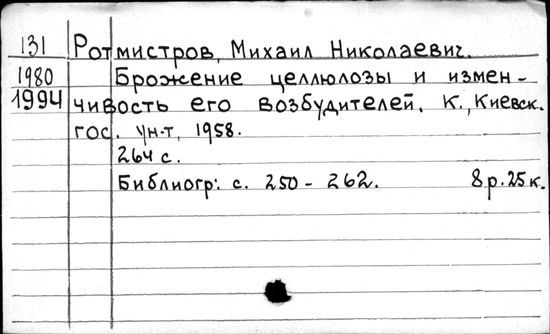 131 Ротмистров, Михаил Николаевич.
1980 Брожение целлюлозы и измен-
1994 чивость его возбудителей. К., Киевск.
гос. ун-т, 1958.
264 с.
Библиогр: с. 250 - 262. 8 р. 25 к.